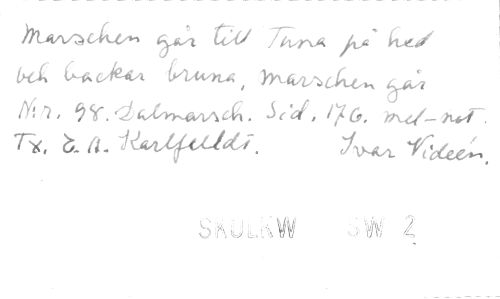 Marschen går till Tuna på hed
och backar bruna, marschen går
N:r. 98. Dalmarsch. Sid. 176. mel-not.
Tx. E. A. Karlfelldt. Ivar Videén.
SKULKW SW 2